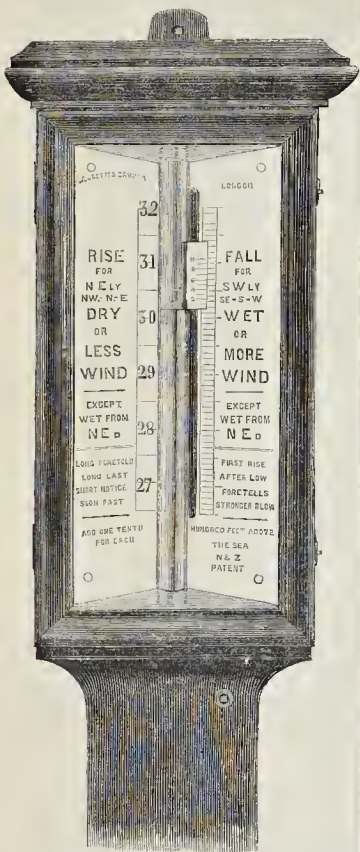 LONDON
32
31
30
29
28
27
RISE
FOR
N ELY
NW.-N.-E
DRY
OR
LESS
WIND
EXCEPT
WET FROM
N ED
LONG FORETOLD
LONG LAST
SHORT NOTICE
SOON PAST
ADD ONE TENTH
FOR EACH
FALL
FOR
S W LY
SE-S-W
WET
OR
MORE
WIND
EXCEPT
WET FROM
N ED
FIRST RISE
AFTER LOW
FORETELLS
STRONGER BLOW
HUNDRED FEET ABOVE
THE SEA
N & Z
PATENT